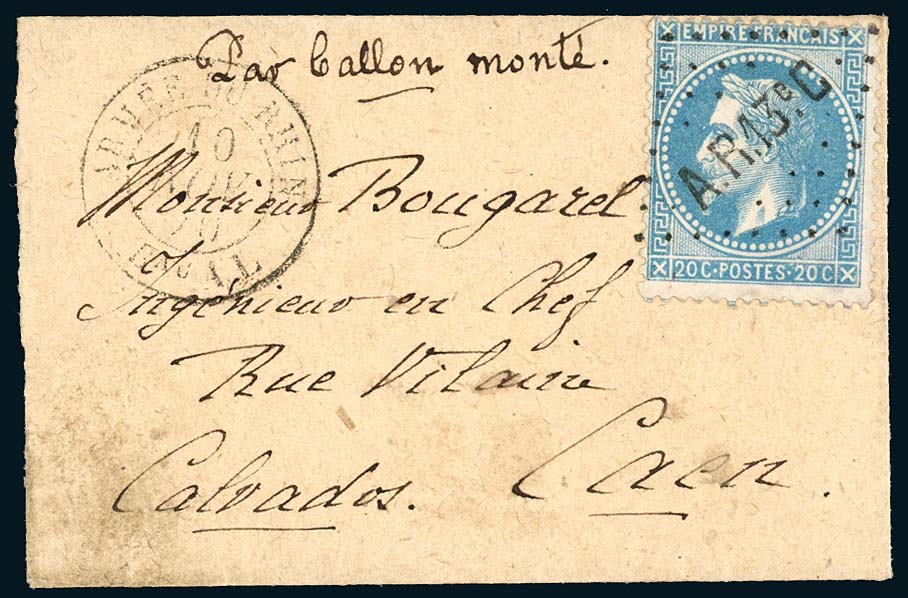 Par ballon monté.
EMPIRE FRANCAIS
A.R.13e C
20 C · POSTES · 20 C
ARMÉE DU RHIN
10
NOV
70
Monsieur Bougarel
Ingénieur en Chef
Rue Vilaine
Calvados. Caen.